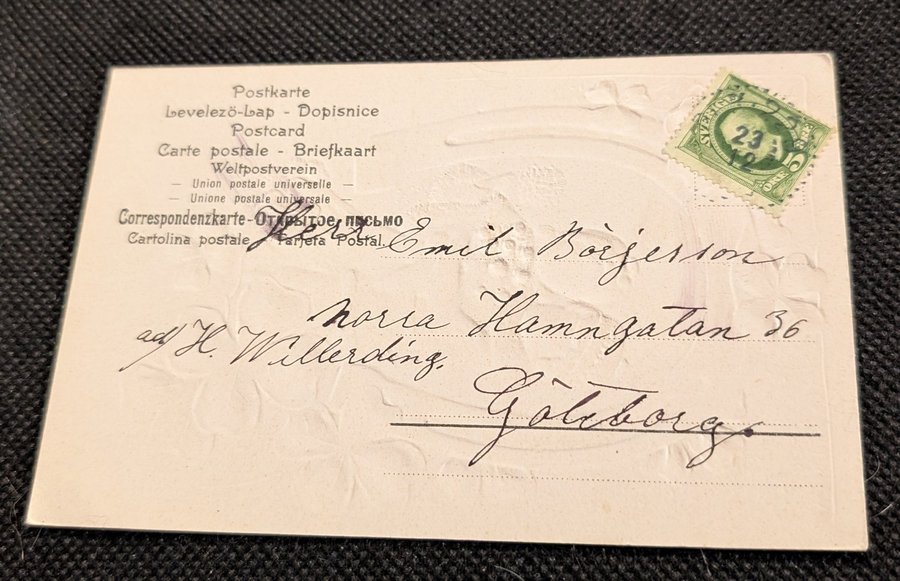 Postkarte
Levelezö-Lap - Dopisnice
Postcard
Carte postale - Briefkaart
Weltpostverein
— Union postale universelle —
— Unione postale universale —
Correspondenzkarte - Открытое письмо
Cartolina postale Tarjeta Postal
SVERIGE
5
23
12
Herr Emil Börjerson
Norra Hamngatan 36
adr H. Willerding.
Göteborg.